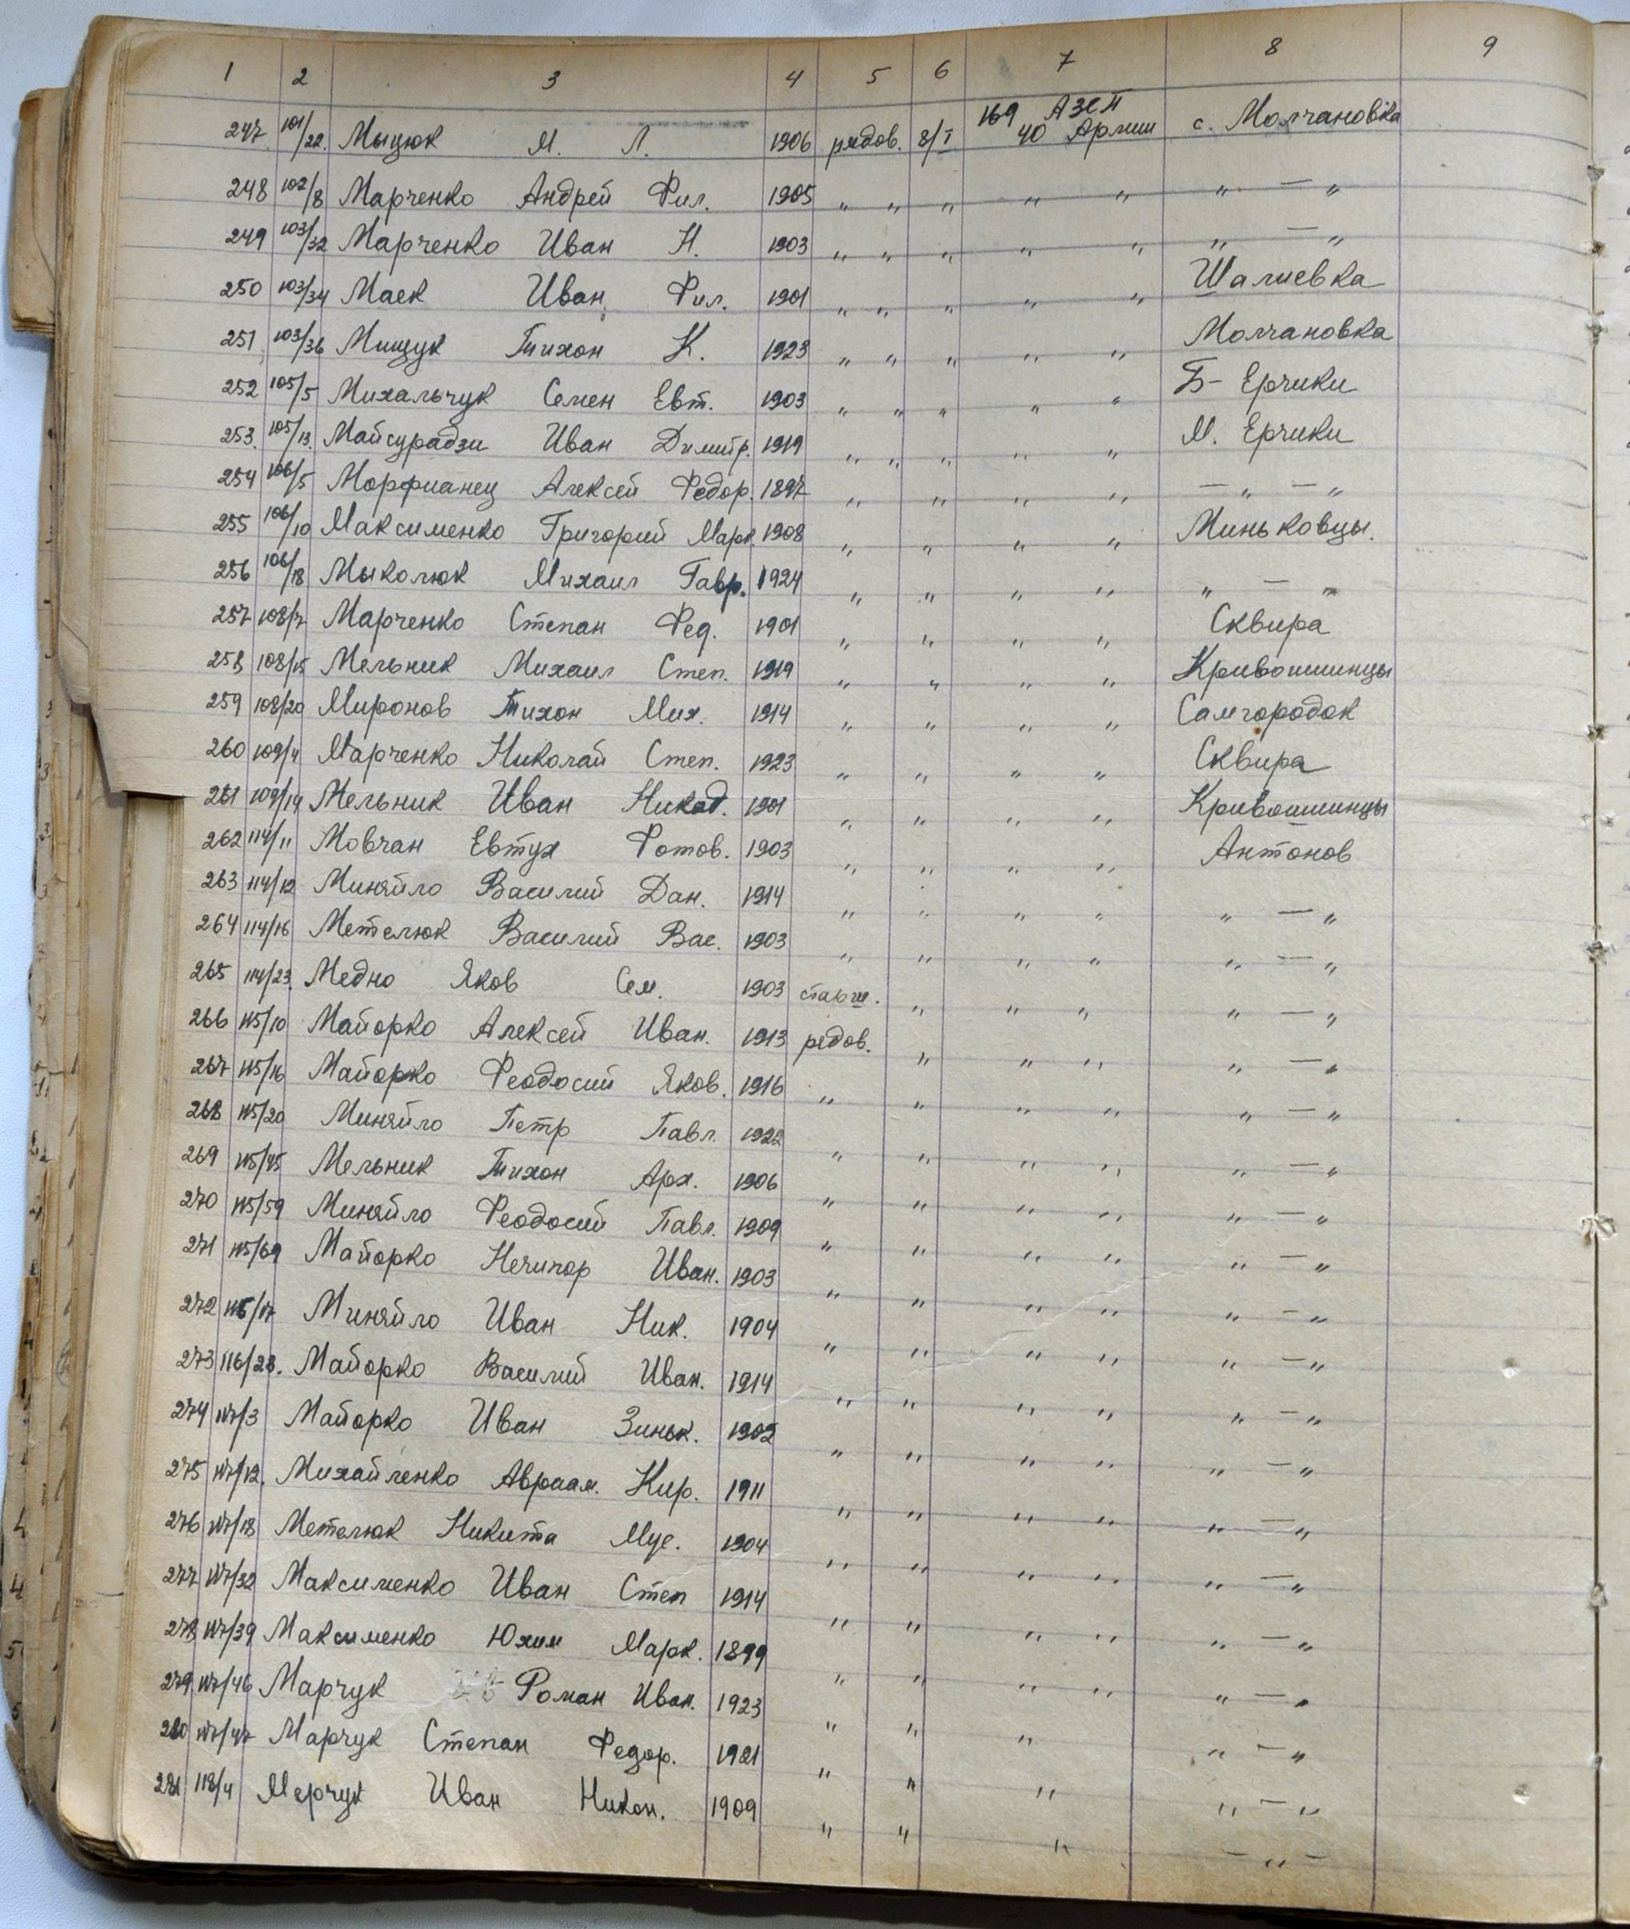 1 2 3 4 5 6 7 8 9
247. 101/22. Мыцюк М. Л. 1906 рядов. 8/I 169 АЗСП 40 Армии с. Молчановка
248 102/8 Марченко Андрей Фил. 1905 „ „ „ „ „ „ — „
249 103/32 Марченко Иван Н. 1903 „ „ „ „ „ „ — „
250 103/34 Маек Иван Фил. 1901 „ „ „ „ „ Шалиевка
251 103/36 Мищук Тихон К. 1923 „ „ „ „ „ Молчановка
252 105/5 Михальчук Семен Евт. 1903 „ „ „ „ „ Б- Ерчики
253. 105/13. Майсурадзи Иван Димитр. 1919 „ „ „ „ „ М. Ерчики
254 106/5 Морфианец Алексей Федор. 1897 „ „ „ „ — „ — „
255 106/10 Максименко Григорий Марк. 1908 „ „ „ „ Миньковцы.
256 106/18 Мыколюк Михаил Гавр. 1924 „ „ „ „ „ — „
257 108/7 Марченко Степан Фед. 1901 „ „ „ „ Сквира
258 108/15 Мельник Михаил Степ. 1919 „ „ „ „ Кривошиинцы
259 108/20 Миронов Тихон Мих. 1914 „ „ „ „ Самгородок
260 109/4 Марченко Николай Степ. 1923 „ „ „ „ Сквира
261 109/14 Мельник Иван Никод. 1901 „ „ „ „ Кривошиинцы
262 114/11 Мовчан Евтух Фотов. 1903 „ „ „ „ Антонов
263 114/12 Миняйло Василий Дан. 1914 „ „ „ „ „ — „
264 114/16 Метелюк Василий Вас. 1903 „ „ „ „ „ — „
265 114/23. Медно Яков Сем. 1903 старш. „ „ „ „ — „
266 115/10 Майорко Алексей Иван. 1913 рядов. „ „ „ „ — „
267 115/16 Майорко Феодосий Яков. 1916 „ „ „ „ „ — „
268 115/20 Миняйло Петр Павл. 1922 „ „ „ „ „ — „
269 115/45 Мельник Тихон Арх. 1906 „ „ „ „ „ — „
270 115/59 Миняйло Феодосий Павл. 1909 „ „ „ „ „ — „
271 115/69 Майорко Нечипор Иван. 1903 „ „ „ „ „ — „
272 116/17 Миняйло Иван Ник. 1904 „ „ „ „ „ — „
273 116/28. Майорко Василий Иван. 1914 „ „ „ „ „ — „
274 117/3 Майорко Иван Зиньк. 1902 „ „ „ „ „ — „
275 117/12. Михайленко Авраам. Кир. 1911 „ „ „ „ „ — „
276 117/18 Метелюк Никита Мус. 1904 „ „ „ „ „ — „
277 117/32 Максименко Иван Степ 1914 „ „ „ „ „ — „
278 117/39 Максименко Юхим Марк. 1899 „ „ „ „ „ — „
279 117/46 Марчук Роман Иван. 1923 „ „ „ „ — „
280 117/47 Марчук Степан Федор. 1921 „ „ „ „ — „
281 118/4 Мерчук Иван Никон. 1909 „ „ „ — „ —